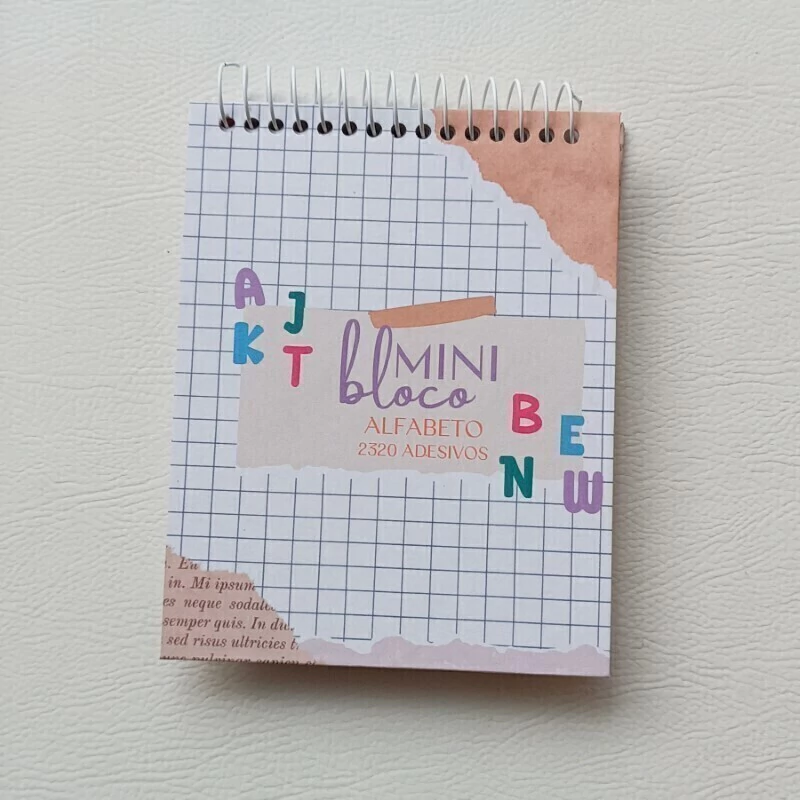 A J
K T
MINI
bloco
ALFABETO
2320 ADESIVOS
B E
N W
. Eu
in. Mi ipsum
es neque sodale
semper quis. In dic
sed risus ultricies t